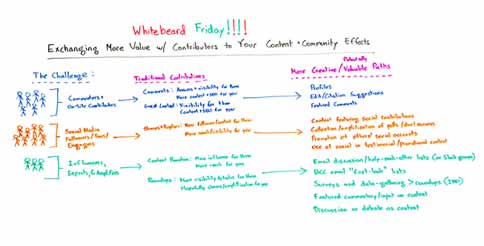 Whitebeard Friday!!!!
Exchanging More Value w/ Contributors to Your Content + Community Efforts
The Challenge:
Traditional Contributions
More Creative/Potentially Valuable Paths
Commenters + On-Site Contributors
Comments: Access + visibility for them
More content + SEO for you
Guest Content: Visibility for them
Content + SEO for you
Profiles
Edit/Citation Suggestions
Featured Comments
Social Media Followers/Fans/Engagers
Shares + Replies: New followers/content for them
More reach/visibility for you
Content featuring social contributions
Collection/amplification of polls/discussions
Promotion of others' social accounts
Use of social in testimonial/promotional content
Influencers, Experts, & Amplifiers
Content Reaction: More influence for them
More reach for you
Roundups: More visibility/status for them
Hopefully shares/amplification for you
Email discussion/help-each-other lists (or Slack groups)
BCC email "Cool-kids" lists
Surveys and data-gathering > roundups
Featured commentary/input on content
Discussion or debate as content